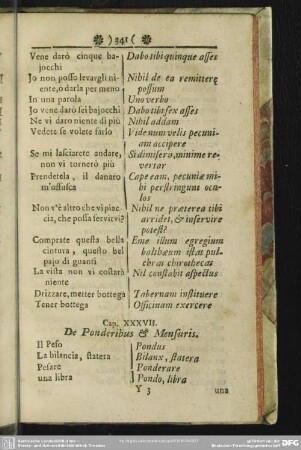 ) 341 (
Vene darò cinque bajocchi | Dabo tibi quinque asses
Jo non posso levargli niente, ò darla per meno | Nihil de ea remittere possum
In una parola | Uno verbo
Jo vene darò sei bajocchi | Dabo tibi sex asses
Ne vi daro niente di più | Nihil addam
Vedete se volete farlo | Vide num velis pecuniam accipere
Se mi lasciarete andare, non vi tornerò più | Si dimisero, minime revertar
Prendetela, il danaro m'offusca | Cape eam, pecuniæ mihi perstringunt oculos
Non v'è altro che vi piaccia, che possa servirvi? | Nihil ne præterea tibi arridet, & inservire potest?
Comprate questa bella cintura, questo bel pajo di guanti | Eme illum egregium baltheum istas pulchras chirothecas
La vista non vi costarà niente | Nil constabit aspectus
Drizzare, metter bottega | Tabernam instituere
Tener bottega | Officinam exercere
Cap. XXXVII.
De Ponderibus & Mensuris.
Il Peso | Pondus
La bilancia, statera | Bilanx, statera
Pesare | Ponderare
una libra | Pondo, libra
Y 3 una